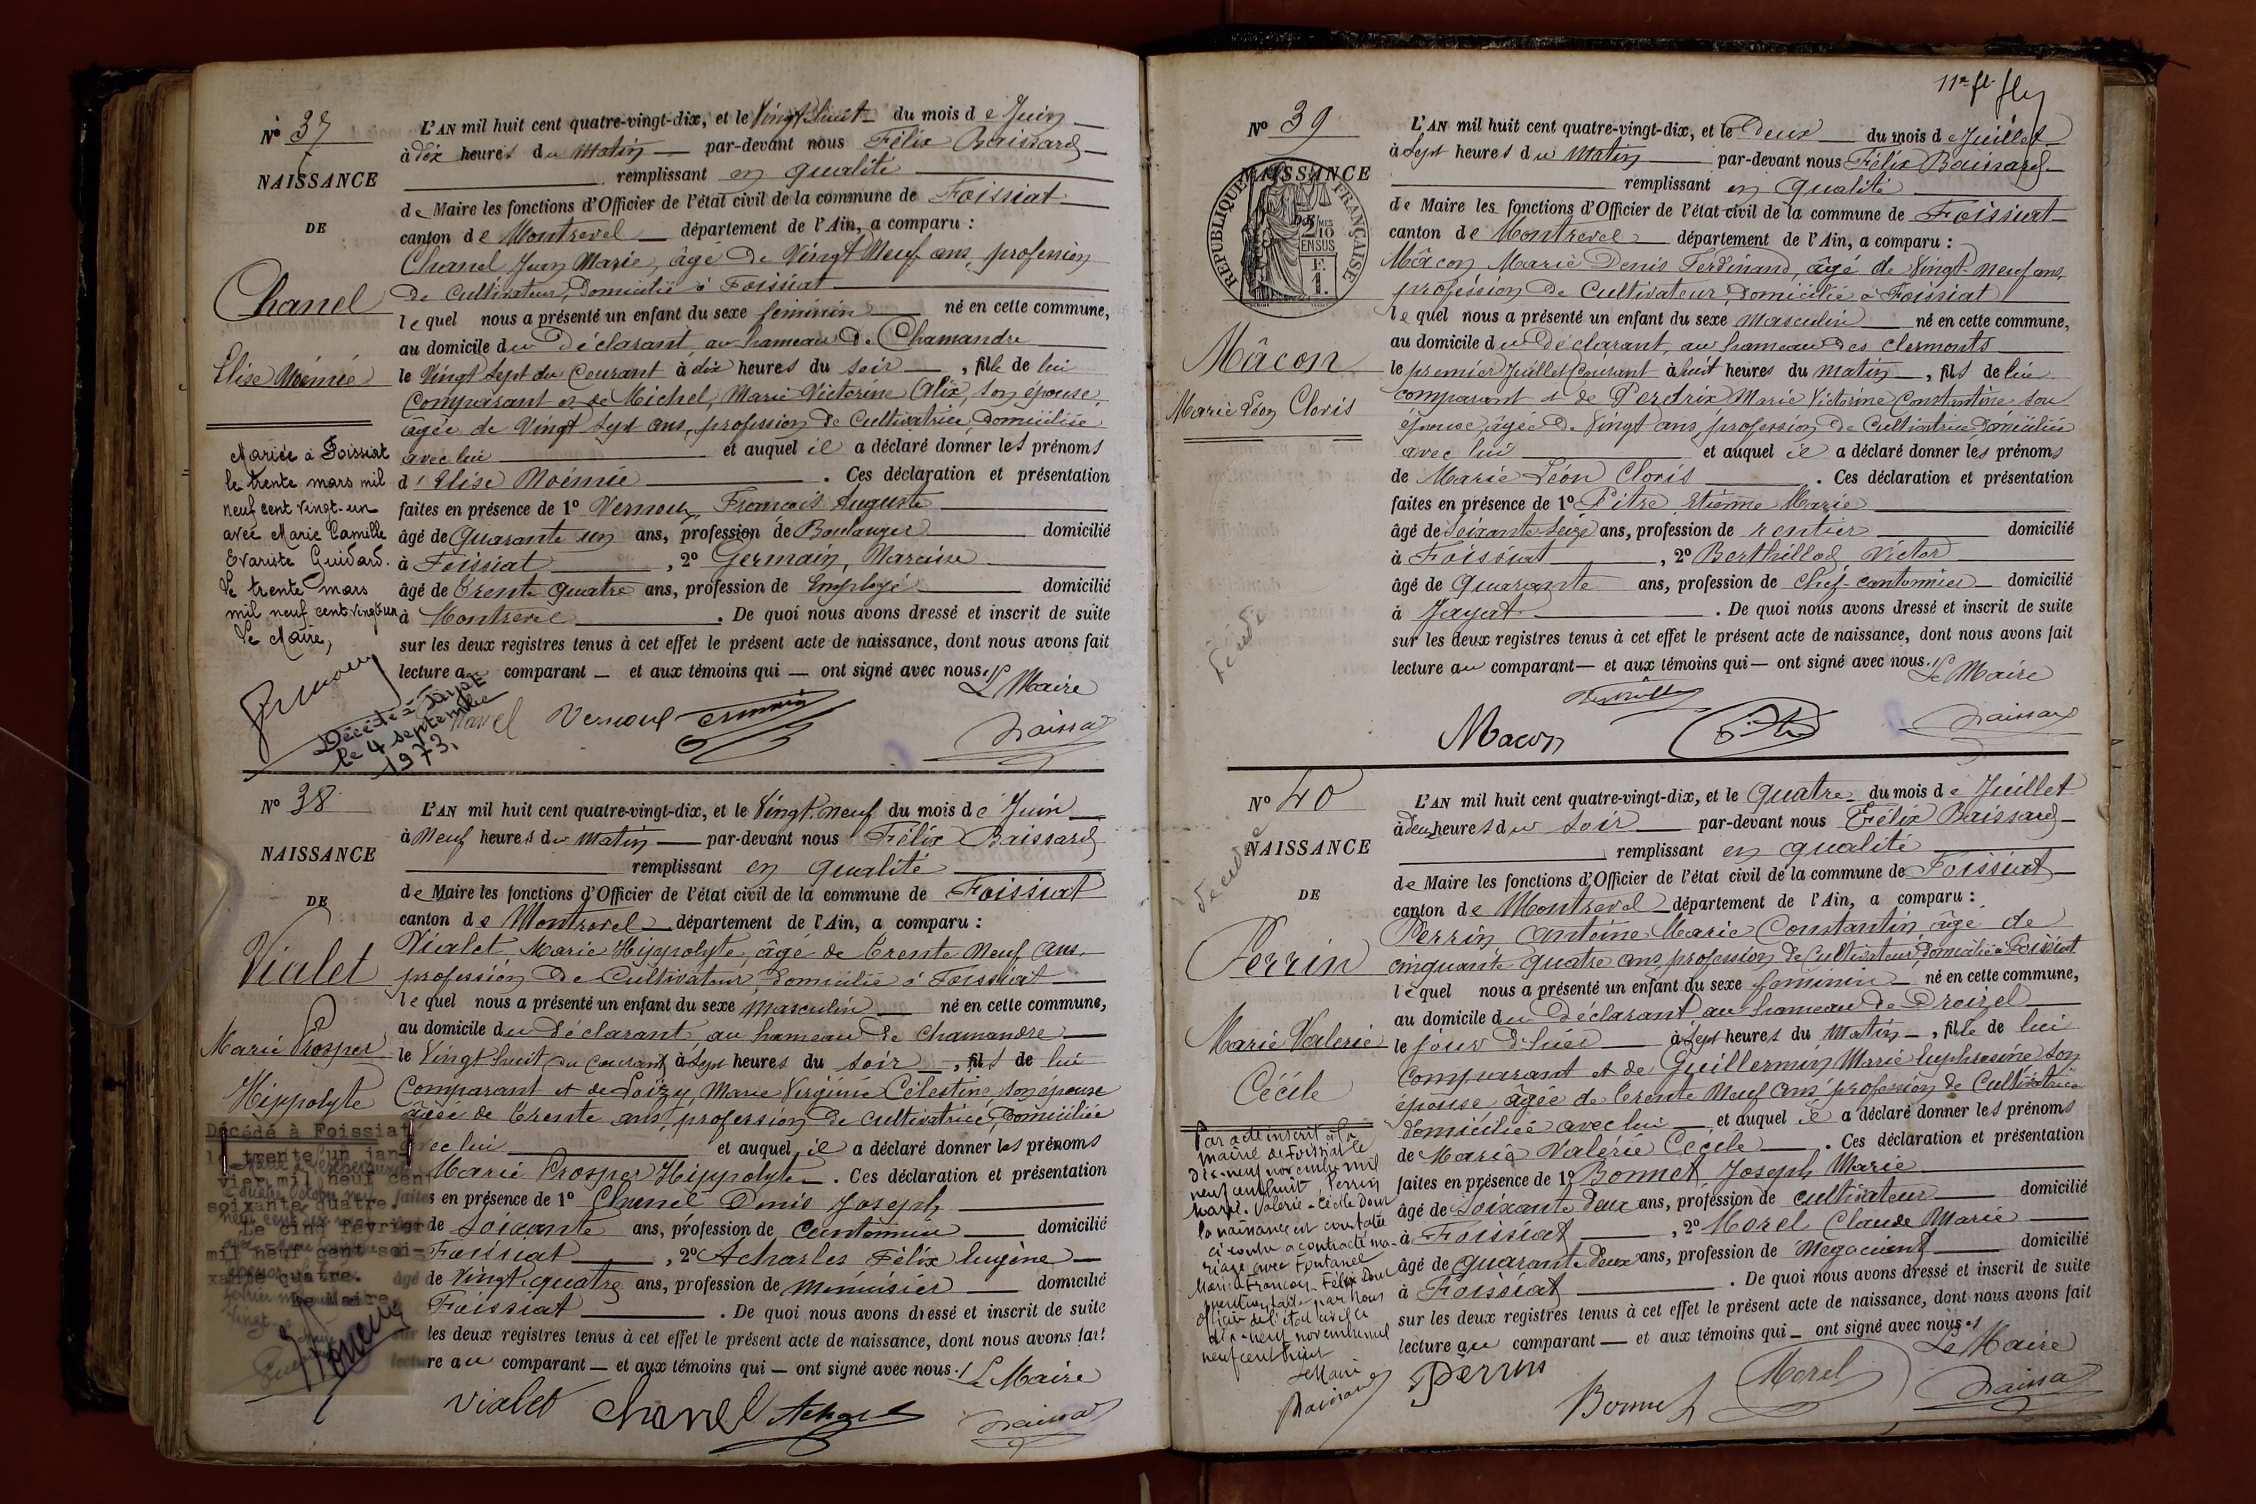 N° 37
NAISSANCE
DE
Chanel
Elise Noémie
Mariée à Foissiat
le trente mars mil
neuf cent vingt-un
avec Marie Camille
Evariste Guidard.
Le trente mars
mil neuf cent vingt un
Le Maire,
Décédée à
le 4 septembre
1973.
L'AN mil huit cent quatre-vingt-dix, et le Vingt huit du mois de Juin
à dix heures du Matin par-devant nous Félix Baissard
remplissant en qualité
de Maire les fonctions d'Officier de l'état civil de la commune de Foissiat
canton de Montrevel département de l'Ain, a comparu :
Chanel Jean Marie, âgé de Vingt Neuf ans, profession
de Cultivateur, Domicilié à Foissiat
lequel nous a présenté un enfant du sexe féminin né en cette commune,
au domicile du Déclarant au hameau de Chamandre
le Vingt Sept du Courant à dix heures du soir, fille de lui
Comparant et de Michel, Marie Victorine Alix, son épouse,
âgée de Vingt Sept ans, profession de Cultivatrice, Domiciliée
avec lui et auquel il a déclaré donner les prénoms
d'Elise Noémie . Ces déclaration et présentation
faites en présence de 1° Vernoux François Auguste
âgé de Quarante un ans, profession de Boulanger domicilié
à Foissiat, 2° Germain, Narcisse
âgé de Trente quatre ans, profession de Employé domicilié
à Montrevel. De quoi nous avons dressé et inscrit de suite
sur les deux registres tenus à cet effet le présent acte de naissance, dont nous avons fait
lecture au comparant — et aux témoins qui — ont signé avec nous. Le Maire
Chanel Vernoux Germain Baissard
N° 38
NAISSANCE
DE
Vialet
Marie Prosper
Hippolyte
Décédé à Foissiat
le trente un jan-
vier mil neuf cent
soixante quatre.
Le cinq février
mil neuf cent soi-
xante quatre.
Le Maire,
L'AN mil huit cent quatre-vingt-dix, et le Vingt neuf du mois de Juin
à Neuf heures du Matin par-devant nous Félix Baissard
remplissant en qualité
de Maire les fonctions d'Officier de l'état civil de la commune de Foissiat
canton de Montrevel département de l'Ain, a comparu :
Vialet Marie Hippolyte, âgé de Trente Neuf ans,
profession de Cultivateur, domicilié à Foissiat
lequel nous a présenté un enfant du sexe Masculin né en cette commune,
au domicile du Déclarant, au hameau de Chamandre
le Vingt huit du Courant à Sept heures du soir, fils de lui
Comparant et de Loizy, Marie Virginie Célestine, son épouse
âgée de Trente ans, profession de cultivatrice, Domiciliée
avec lui et auquel il a déclaré donner les prénoms
Marie Prosper Hippolyte. Ces déclaration et présentation
faites en présence de 1° Chanel Denis Joseph
de Soixante ans, profession de Cantonnier domicilié
Foissiat, 2° Acharles Félix Eugène
âgé de Vingt quatre ans, profession de Menuisier domicilié
Foissiat. De quoi nous avons dressé et inscrit de suite
les deux registres tenus à cet effet le présent acte de naissance, dont nous avons fait
lecture au comparant — et aux témoins qui — ont signé avec nous. Le Maire
Vialet Chanel Acharles Baissard
N° 39
NAISSANCE
REPUBLIQUE FRANÇAISE
2/10 EN SUS
F.
1.
Mâcon
Marie Léon Cloris
L'AN mil huit cent quatre-vingt-dix, et le Deux du mois de Juillet
à Sept heures du Matin par-devant nous Félix Baissard
remplissant en qualité
de Maire les fonctions d'Officier de l'état civil de la commune de Foissiat
canton de Montrevel département de l'Ain, a comparu :
Mâcon Marie Denis Ferdinand, âgé de Vingt-neuf ans,
profession de Cultivateur, Domicilié à Foissiat
lequel nous a présenté un enfant du sexe Masculin né en cette commune,
au domicile du Déclarant, au hameau des Clermonts
le premier Juillet Courant à huit heures du matin, fils de lui
comparant & de Perdrix Marie Victorine Constantine son
épouse, âgée de Vingt ans, profession de Cultivatrice, Domiciliée
avec lui et auquel il a déclaré donner les prénoms
de Marie Léon Cloris . Ces déclaration et présentation
faites en présence de 1° Pitre Etienne Marie
âgé de Soixante Seize ans, profession de rentier domicilié
à Foissiat, 2° Berthillod Victor
âgé de Quarante ans, profession de Chef-cantonnier domicilié
à Jayat. De quoi nous avons dressé et inscrit de suite
sur les deux registres tenus à cet effet le présent acte de naissance, dont nous avons fait
lecture au comparant — et aux témoins qui — ont signé avec nous. Le Maire
Macon Baissard
N° 40
NAISSANCE
DE
Perrin
Marie Valérie
Cécile
Par acte inscrit à la
mairie de Foissiat le
dix-neuf novembre mil
neuf cent huit Perrin
Marie-Valérie-Cécile dont
la naissance est constatée
ci contre a contracté ma-
riage avec Fontanel
Marie François Félix Dont
mention faite par nous
officier de l'état civil le
dix-neuf novembre mil
neuf cent huit
Le Maire
Baissard
L'AN mil huit cent quatre-vingt-dix, et le Quatre du mois de Juillet
à deux heures du soir par-devant nous Félix Baissard
remplissant en qualité
de Maire les fonctions d'Officier de l'état civil de la commune de Foissiat
canton de Montrevel département de l'Ain, a comparu :
Perrin Antoine Marie Constantin, âgé de
cinquante quatre ans, profession de Cultivateur, domicilié à Foissiat
lequel nous a présenté un enfant du sexe féminin né en cette commune,
au domicile du Déclarant au hameau de Droizel
le jour d'hier à Sept heures du Matin, fille de lui
Comparant et de Guillermin Marie Euphrosine son
épouse, âgée de trente Neuf ans, profession de Cultivatrice
domiciliée avec lui et auquel il a déclaré donner les prénoms
de Marie Valérie Cécile . Ces déclaration et présentation
faites en présence de 1° Bonnet Joseph Marie
âgé de Soixante Deux ans, profession de cultivateur domicilié
à Foissiat, 2° Morel Claude Marie
âgé de quarante Deux ans, profession de Négociant domicilié
à Foissiat. De quoi nous avons dressé et inscrit de suite
sur les deux registres tenus à cet effet le présent acte de naissance, dont nous avons fait
lecture au comparant — et aux témoins qui — ont signé avec nous. Le Maire
Perrin Bonnet Morel Baissard